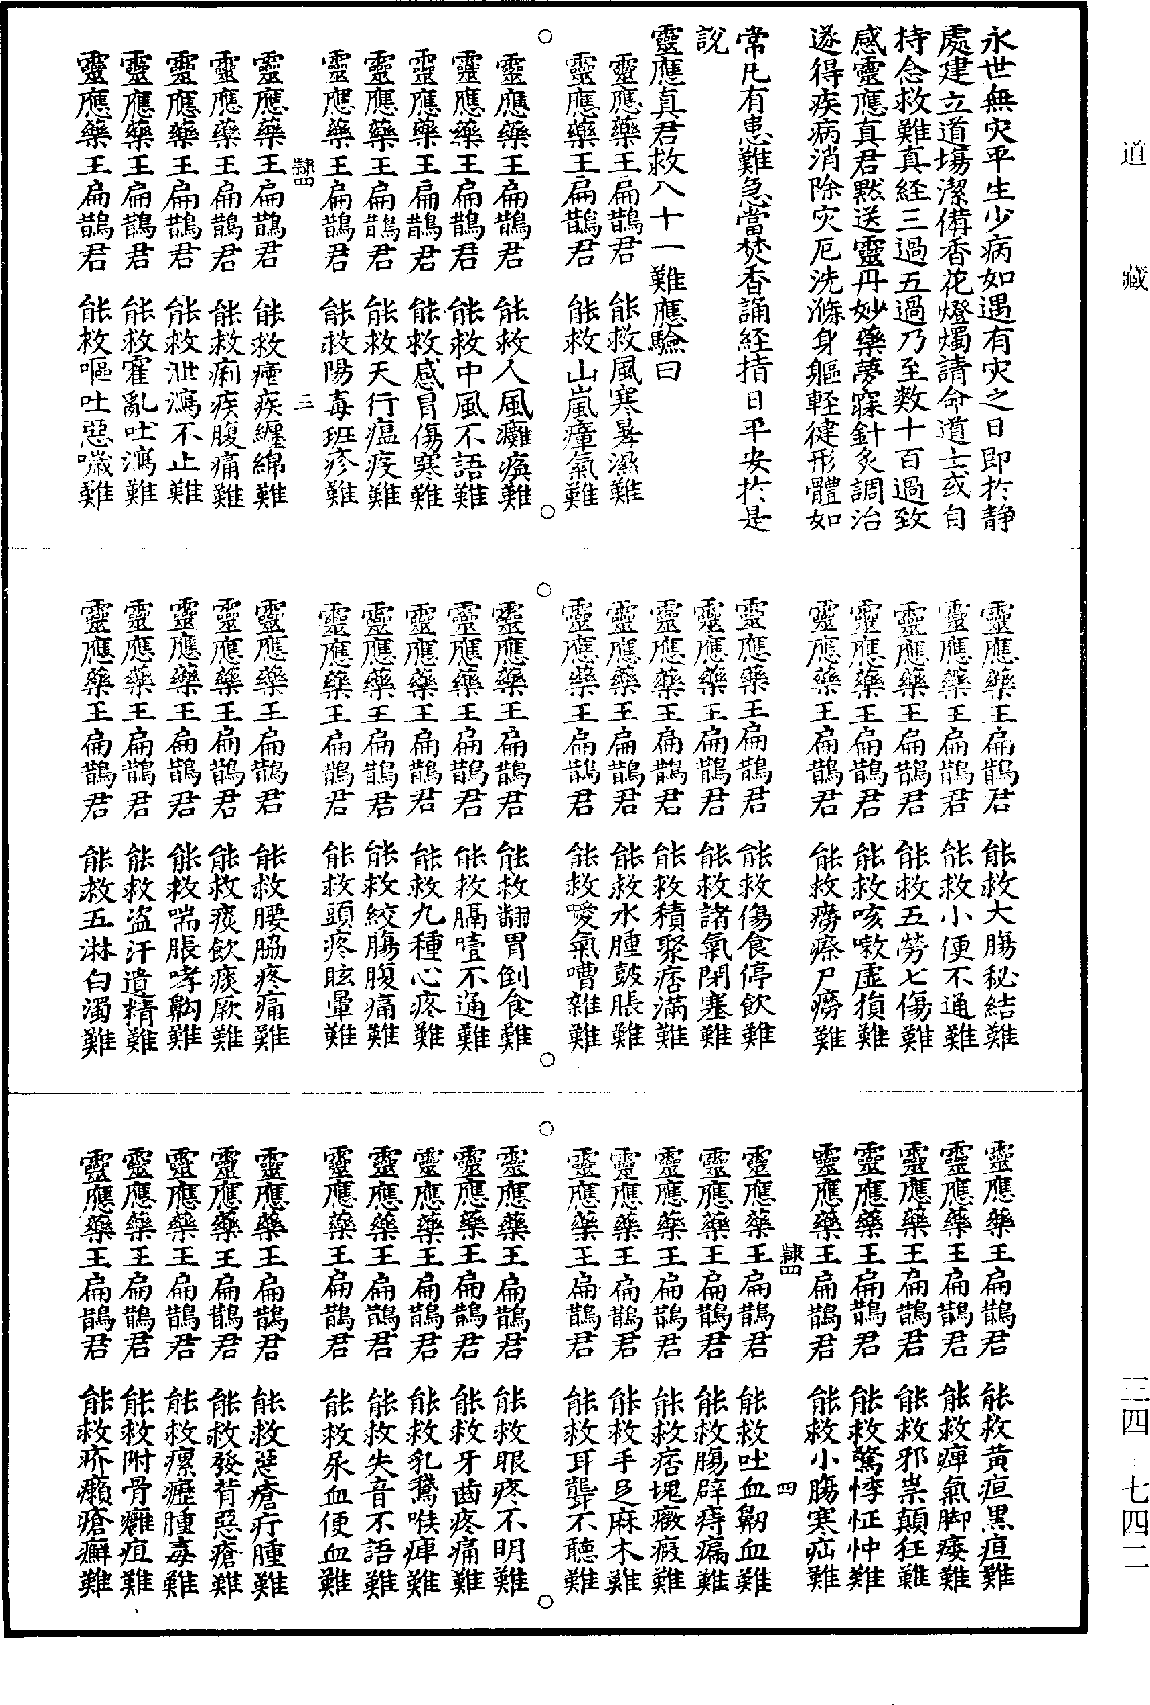 道藏
永世無灾平生少病如遇有灾之日即於靜
處建立道場潔備香花燈燭請命道士或自
持念救難真経三過五過乃至数十百過致
感靈應真君黙送靈丹妙藥夢寐針灸調治
遂得疾病消除灾厄洗滌身軀輕健形體如
常凡有患難急當焚香誦経指日平安於是
說
靈應真君救八十一難應驗曰
靈應藥王扁鵲君 能救風寒暑濕難
靈應藥王扁鵲君 能救山嵐瘴氣難
靈應藥王扁鵲君 能救人風癱瘓難
靈應藥王扁鵲君 能救中風不語難
靈應藥王扁鵲君 能救感冒傷寒難
靈應藥王扁鵲君 能救天行瘟疫難
靈應藥王扁鵲君 能救陽毒班疹難
隸四 三
靈應藥王扁鵲君 能救瘧疾纏綿難
靈應藥王扁鵲君 能救痢疾腹痛難
靈應藥王扁鵲君 能救泄瀉不止難
靈應藥王扁鵲君 能救霍亂吐瀉難
靈應藥王扁鵲君 能救嘔吐惡噦難
靈應藥王扁鵲君 能救大腸秘結難
靈應藥王扁鵲君 能救小便不通難
靈應藥王扁鵲君 能救五勞七傷難
靈應藥王扁鵲君 能救咳嗽虛損難
靈應藥王扁鵲君 能救癆瘵尸癆難
靈應藥王扁鵲君 能救傷食停飲難
靈應藥王扁鵲君 能救諸氣閉塞難
靈應藥王扁鵲君 能救積聚痞滿難
靈應藥王扁鵲君 能救水腫鼓脹難
靈應藥王扁鵲君 能救噯氣嘈雜難
靈應藥王扁鵲君 能救翻胃倒食難
靈應藥王扁鵲君 能救膈噎不通難
靈應藥王扁鵲君 能救九種心疼難
靈應藥王扁鵲君 能救絞腸腹痛難
靈應藥王扁鵲君 能救頭疼眩暈難
靈應藥王扁鵲君 能救腰脇疼痛難
靈應藥王扁鵲君 能救痰飲痰厥難
靈應藥王扁鵲君 能救喘脹哮齁難
靈應藥王扁鵲君 能救盗汗遺精難
靈應藥王扁鵲君 能救五淋白濁難
靈應藥王扁鵲君 能救黃疸黑疸難
靈應藥王扁鵲君 能救痺氣脚痿難
靈應藥王扁鵲君 能救邪祟顛狂難
靈應藥王扁鵲君 能救驚悸怔忡難
靈應藥王扁鵲君 能救小腸寒疝難
隸四 四
靈應藥王扁鵲君 能救吐血衂血難
靈應藥王扁鵲君 能救腸辟痔瘺難
靈應藥王扁鵲君 能救痞塊癥瘕難
靈應藥王扁鵲君 能救手足麻木難
靈應藥王扁鵲君 能救耳聾不聽難
靈應藥王扁鵲君 能救眼疼不明難
靈應藥王扁鵲君 能救牙齒疼痛難
靈應藥王扁鵲君 能救乳鵞喉痺難
靈應藥王扁鵲君 能救失音不語難
靈應藥王扁鵲君 能救尿血便血難
靈應藥王扁鵲君 能救惡瘡疔腫難
靈應藥王扁鵲君 能救發背惡瘡難
靈應藥王扁鵲君 能救瘰癧腫毒難
靈應藥王扁鵲君 能救附骨癰疽難
靈應藥王扁鵲君 能救疥癩瘡癬難
三四 七四二